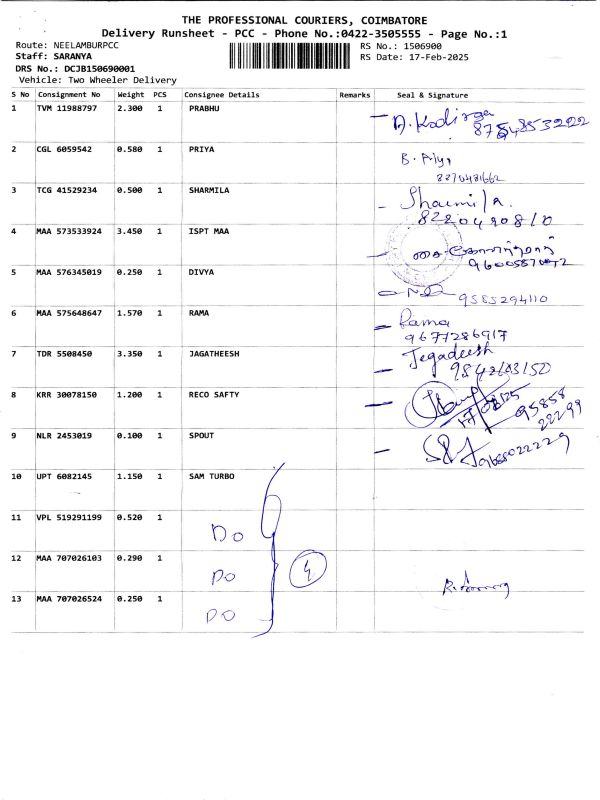 THE PROFESSIONAL COURIERS, COIMBATORE
Delivery Runsheet - PCC - Phone No.:0422-3505555 - Page No.:1
Route: NEELAMBURPCC
RS No.: 1506900
Staff: SARANYA
RS Date: 17-Feb-2025
DRS No.: DCJB150690001
Vehicle: Two Wheeler Delivery
S No Consignment No Weight PCS Consignee Details Remarks Seal & Signature
1 TVM 11988797 2.300 1 PRABHU
8754853222
2 CGL 6059542 0.580 1 PRIYA B. Priya
3 TCG 41529234 0.500 1 SHARMILA Sharmila.
8220420810
4 MAA 573533924 3.450 1 ISPT MAA
5 MAA 576345019 0.250 1 DIVYA
9585294110
6 MAA 575648647 1.570 1 RAMA Rama
9677286917
7 TDR 5508450 3.350 1 JAGATHEESH Jegadeesh
8 KRR 30078150 1.200 1 RECO SAFTY
17/02/25
95858
22299
9 NLR 2453019 0.100 1 SPOUT
10 UPT 6082145 1.150 1 SAM TURBO
11 VPL 519291199 0.520 1 Do
12 MAA 707026103 0.290 1 Do 4
13 MAA 707026524 0.250 1 Do